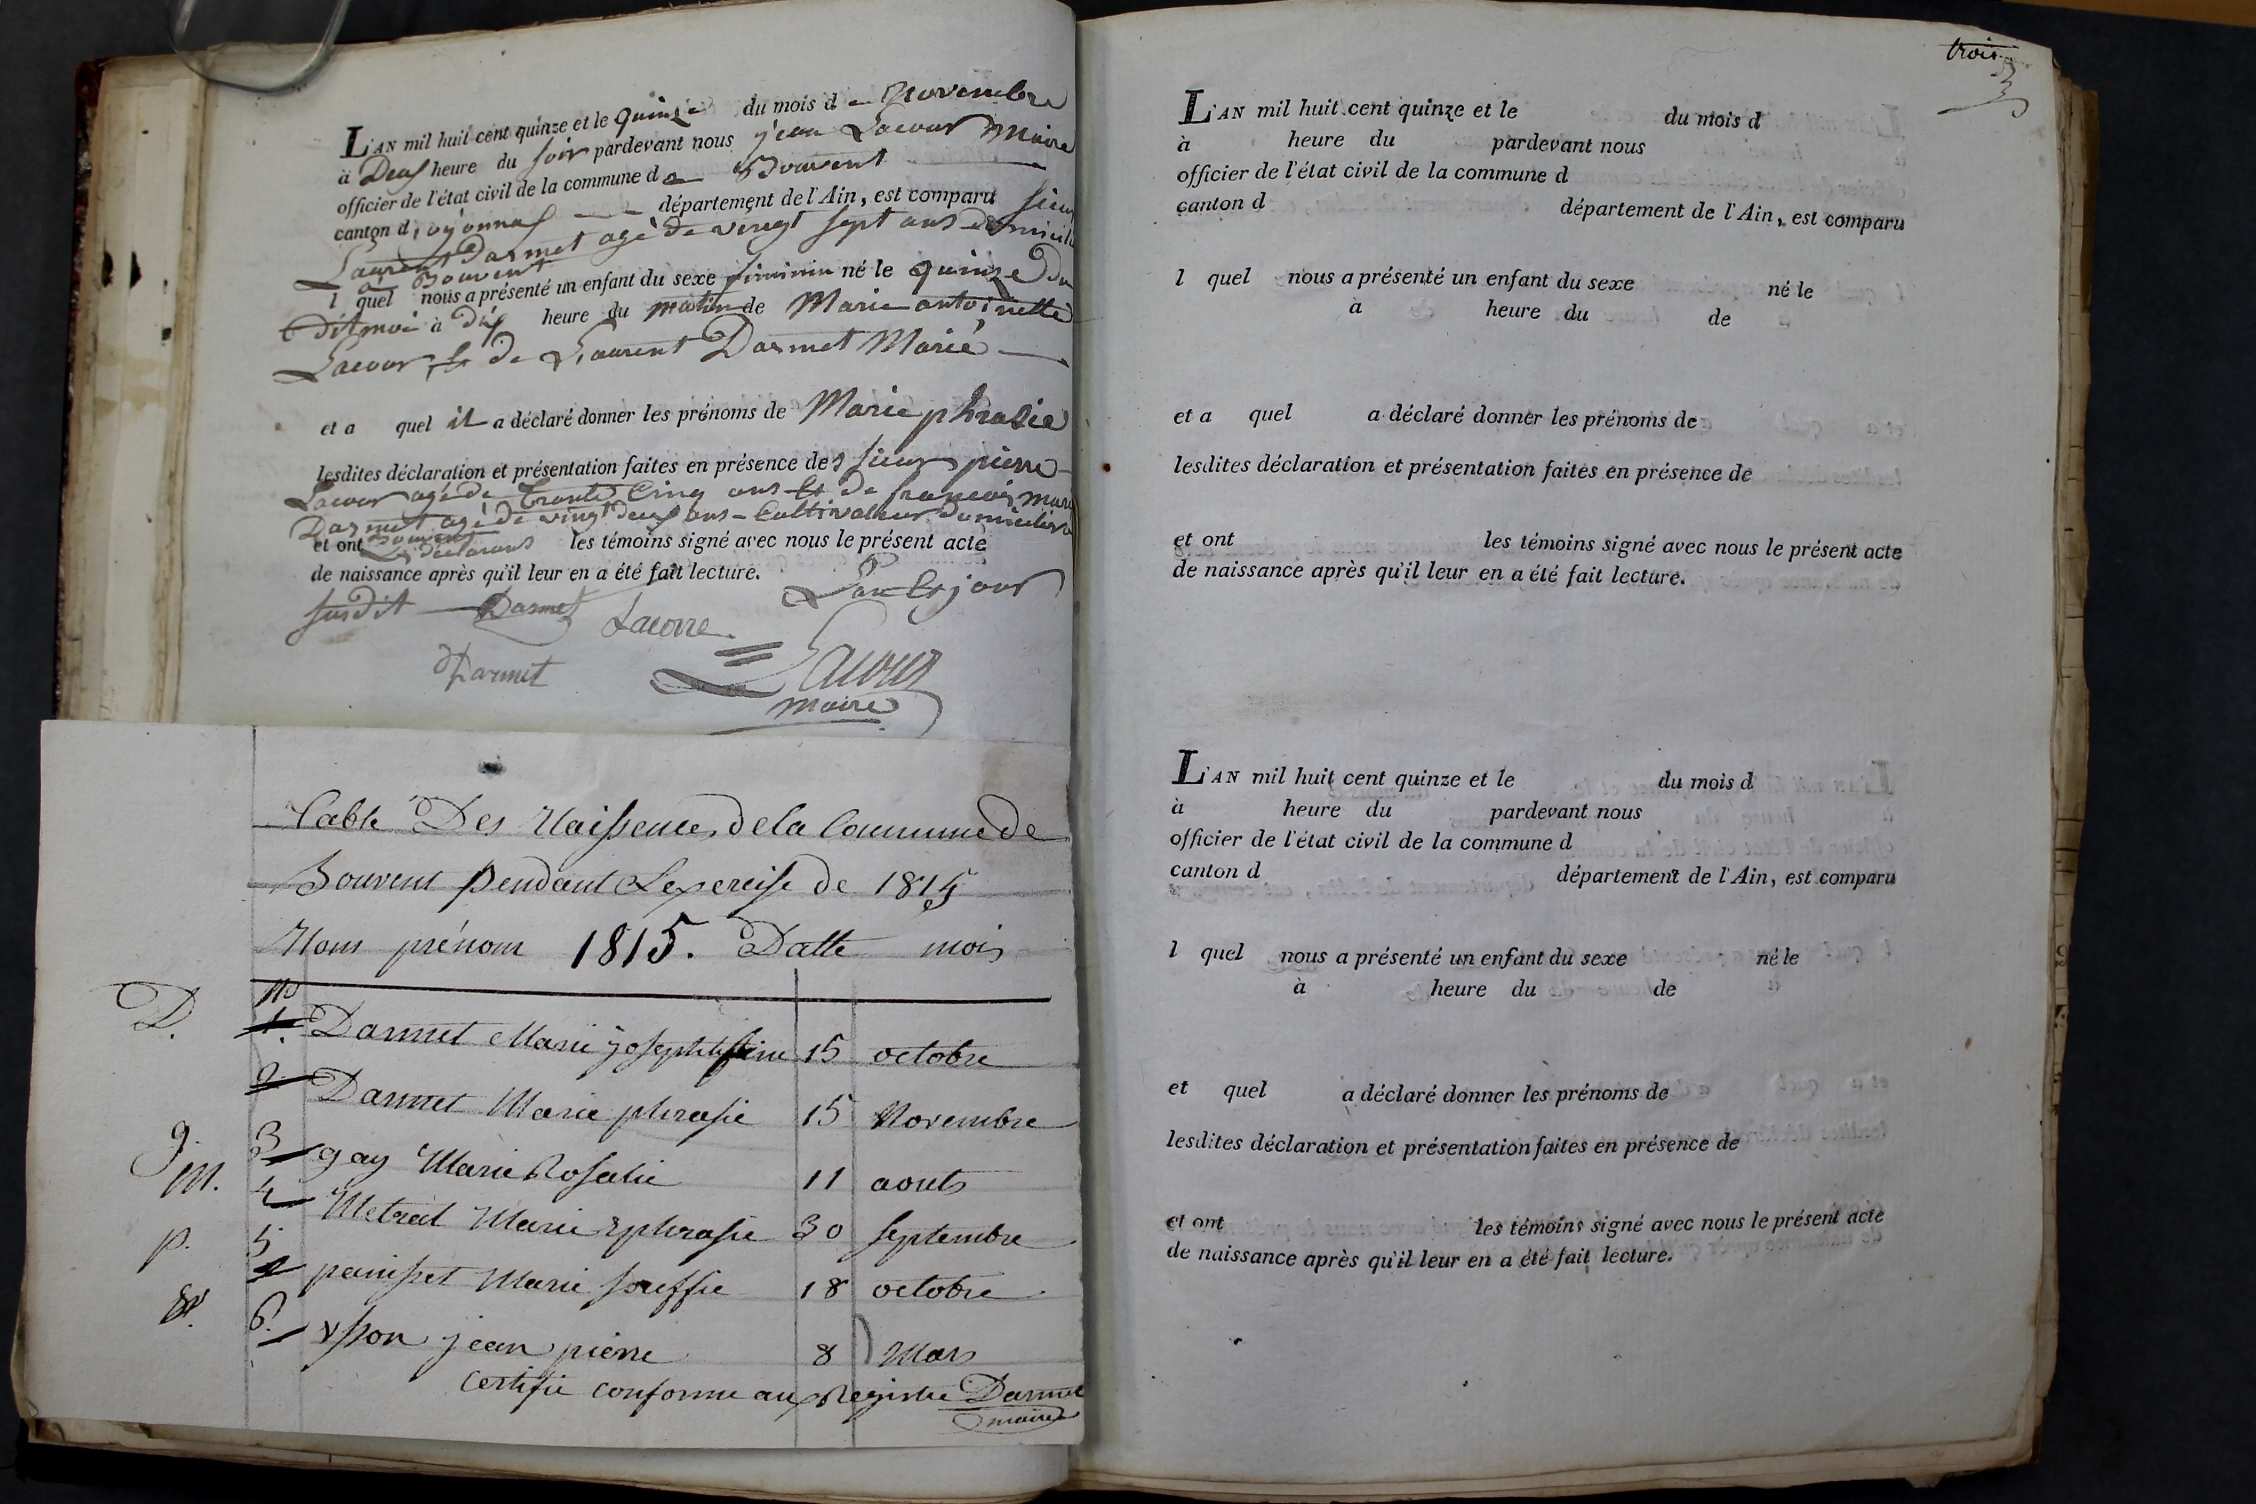 L'AN mil huit cent quinze et le quinze du mois de novembre
à Deux heure du soir pardevant nous jean Lacour Maire
officier de l'état civil de la commune de Bouvent
canton d'oyonnax département de l'Ain, est comparu sieur
Laurent Darmet agé de vingt sept ans domicilié
à Bouvent
l quel nous a présenté un enfant du sexe féminin né le quinze Du
dit moi à dix heure du matin de Marie antoinette
Lacour et de Laurent Darmet Marié
et a quel il a déclaré donner les prénoms de Marie phrasie
lesdites déclaration et présentation faites en présence des sieurs pierre
Lacour agé de Trente Cinq ans et de francois marie
Darmet agé de vingt deux ans Cultivateur Domicilié à
Bouvent
et ont déclarans les témoins signé avec nous le présent acte
de naissance après qu'il leur en a été fait lecture. L'an et jour
susdit Darmet Lacorre
Darmet Lacour
maire
table Des Naissence de la Commune de
Bouvent Pendant Lexercise de 1815
Noms prénom 1815. Datte mois
No
D. 1. Darmet Marie josephtissine 15 octobre
2 Darmet Marie phrasie 15 Novembre
g. 3 gay Marie Rosalie 11 aouts
M. 4 Metral Marie Ephrasie 30 septembre
p. 5 panisset Marie souffie 18 octobre
6. ysson jean pierre 8 Mars
Certifie conforme au Registre Darmet
maire
trois
3
L'AN mil huit cent quinze et le du mois d
à heure du pardevant nous
officier de l'état civil de la commune d
canton d département de l'Ain, est comparu
l quel nous a présenté un enfant du sexe né le
à heure du de
et a quel a déclaré donner les prénoms de
lesdites déclaration et présentation faites en présence de
et ont les témoins signé avec nous le présent acte
de naissance après qu'il leur en a été fait lecture.
L'AN mil huit cent quinze et le du mois d
à heure du pardevant nous
officier de l'état civil de la commune d
canton d département de l'Ain, est comparu
l quel nous a présenté un enfant du sexe né le
à heure du de
et quel a déclaré donner les prénoms de
lesdites déclaration et présentation faites en présence de
et ont les témoins signé avec nous le présent acte
de naissance après qu'il leur en a été fait lecture.